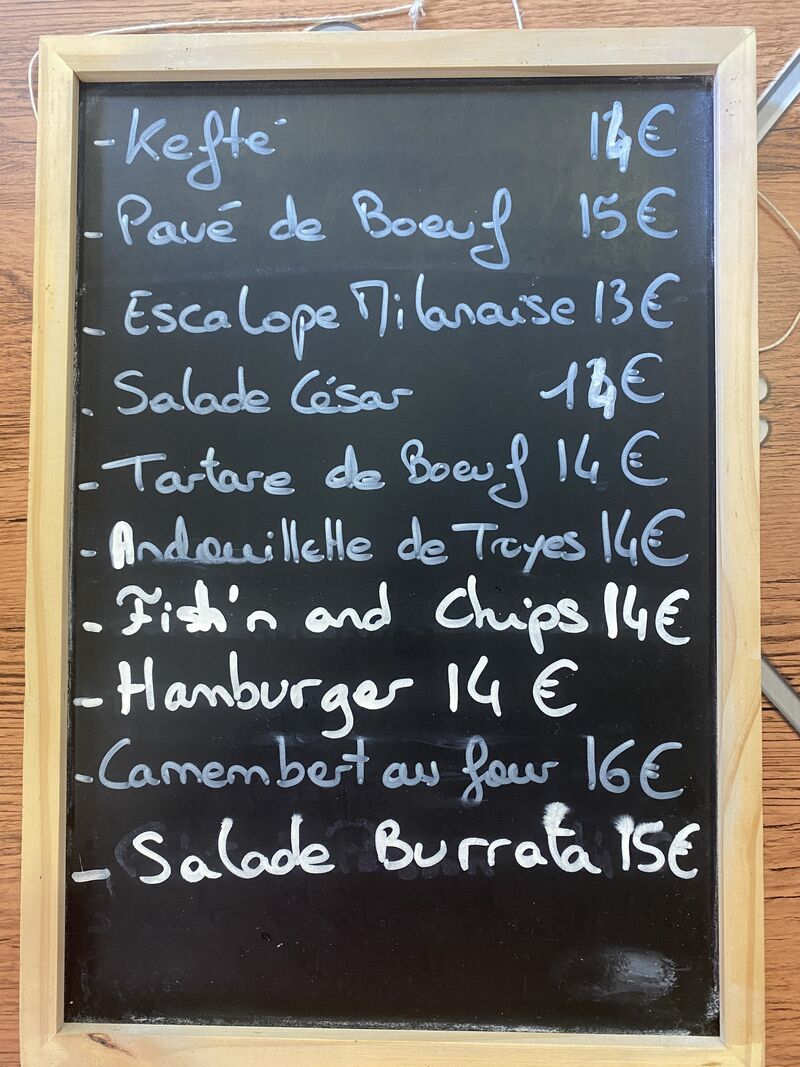 - Kefté 14€
- Pavé de Boeuf 15€
- Escalope Milanaise 13€
- Salade César 14€
- Tartare de Boeuf 14€
- Andouillette de Troyes 14€
- Fish'n and Chips 14€
- Hamburger 14€
- Camembert au four 16€
- Salade Burrata 15€